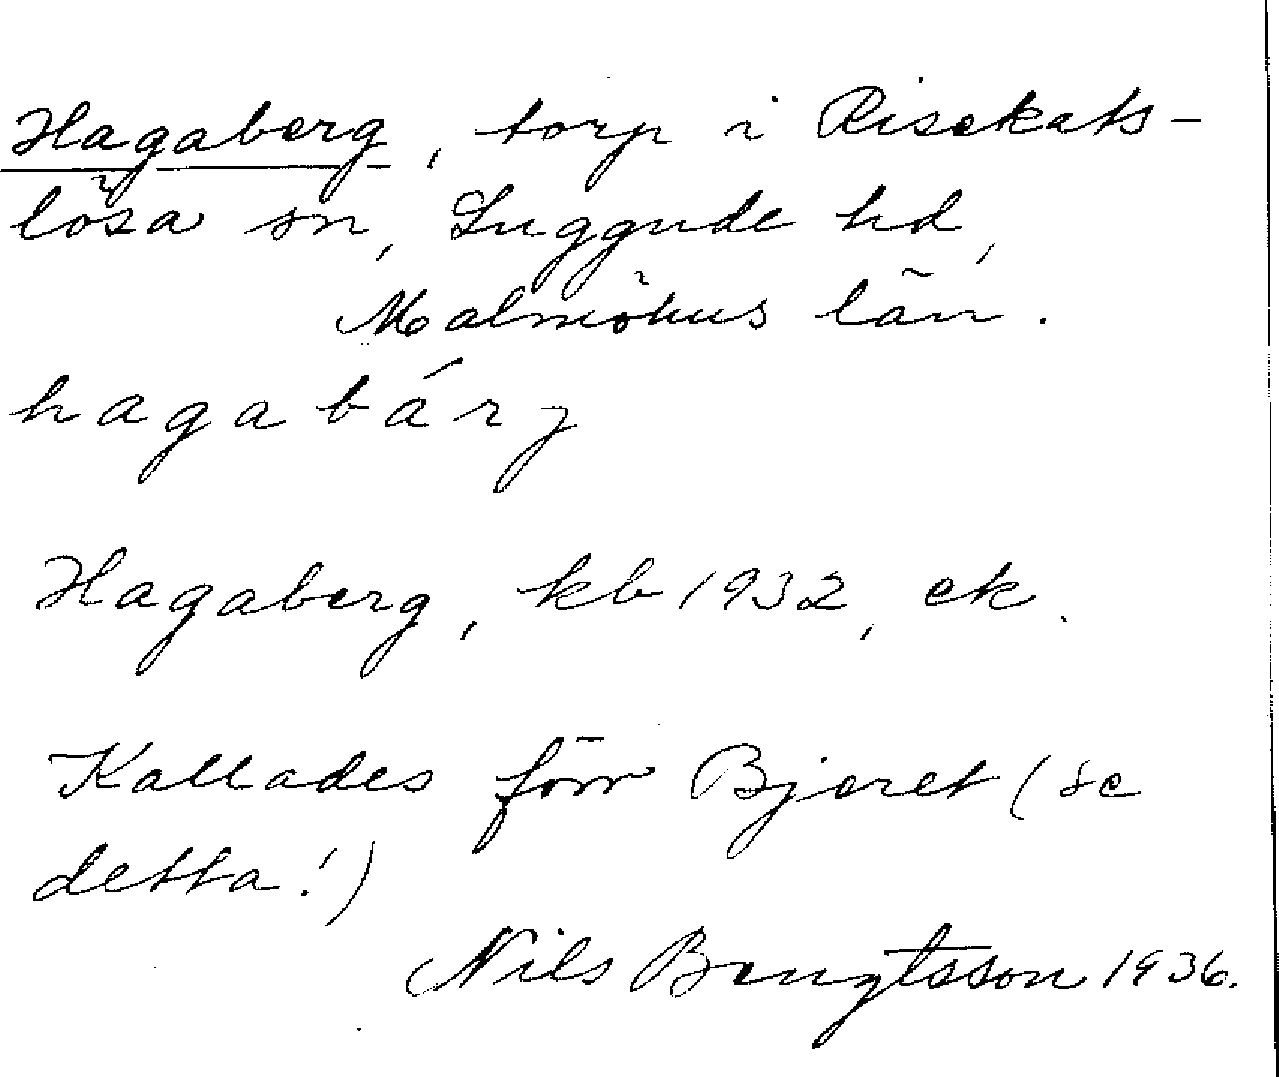 Hagaberg, torp i Risekats-
lösa sn, Luggude hd,
Malmöhus län.
hagabárj
Hagaberg, kb 1932, ek.
Kallades förr Bjeret (se
detta!)
Nils Bengtsson 1936.